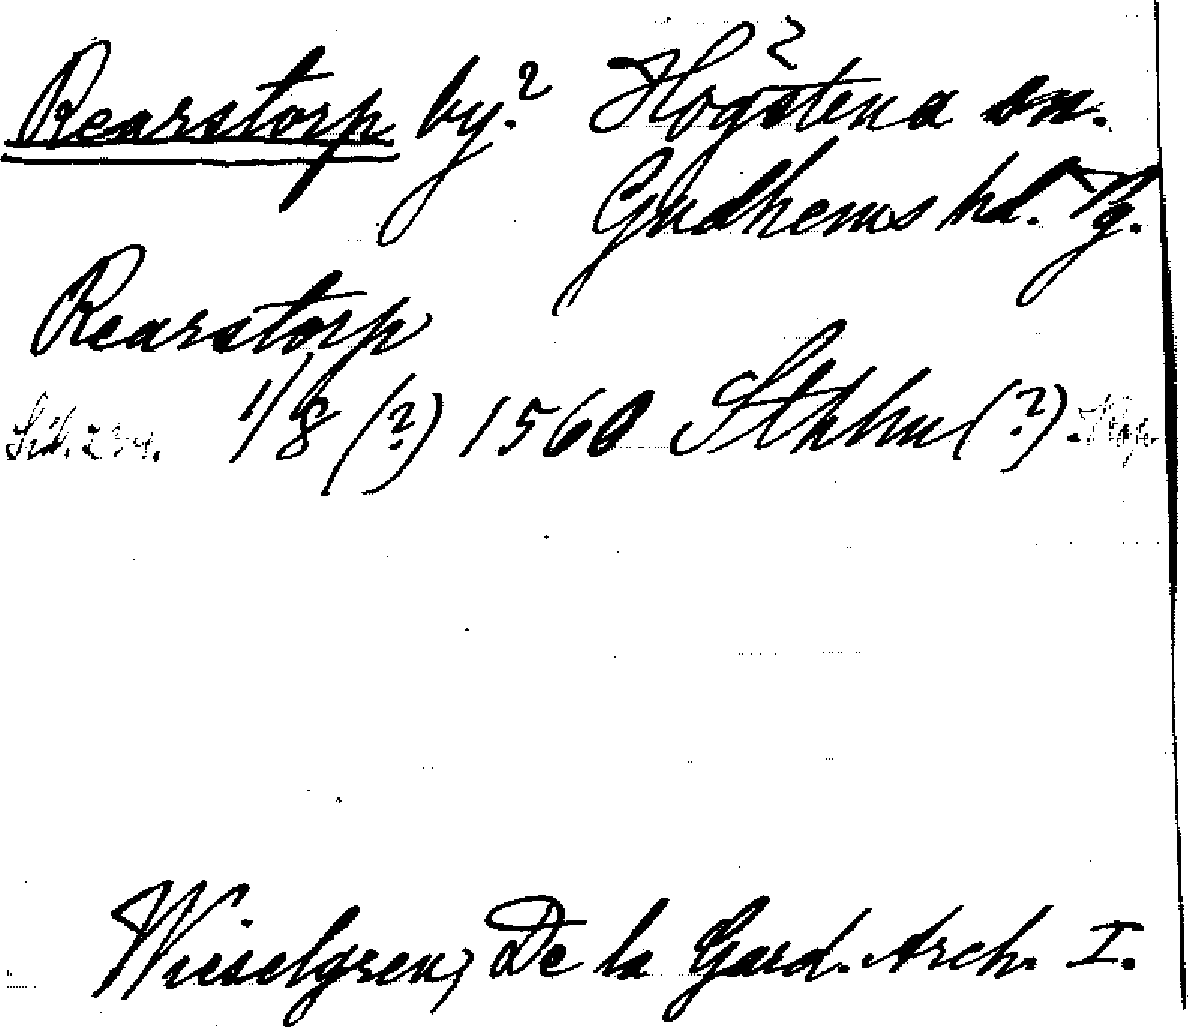 Rearstorp by.? Högstena sn. ?
Gudhems hd. Vg.
Rearstorp
Sid. 234. 1/8 (?) 1560 Sthlm (?).
Wieselgren, De la Gard. Arch. I.